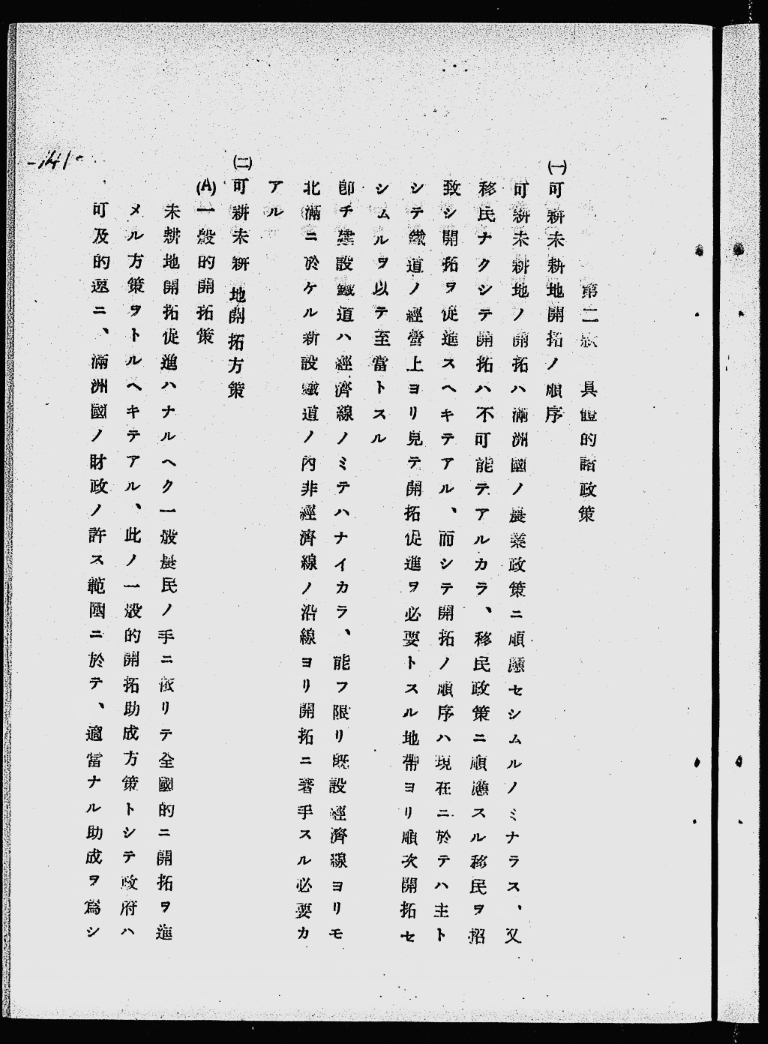 第二款　具體的諸政策
㈠可耕未耕地開拓ノ順序
可耕未耕地ノ開拓ハ滿洲國ノ農業政策ニ順應セシムルノミナラス、又
移民ナクシテ開拓ハ不可能テアルカラ、移民政策ニ順應スル移民ヲ招
致シ開拓ヲ促進スヘキテアル、而シテ開拓ノ順序ハ現在ニ於テハ主ト
シテ鐵道ノ經營上ヨリ見テ開拓促進ヲ必要トスル地帶ヨリ順次開拓セ
シムルヲ以テ至當トスル
卽チ建設鐵道ハ經濟線ノミテハナイカラ、能フ限リ既設經濟線ヨリモ
北滿ニ於ケル新設鐵道ノ內非經濟線ノ沿線ヨリ開拓ニ著手スル必要カ
アル
㈡可耕未耕地開拓方策
(A)一般的開拓策
未耕地開拓促進ハナルヘク一般農民ノ手ニ依リテ全國的ニ開拓ヲ進
メル方策ヲトルヘキテアル、此ノ一般的開拓助成方策トシテ政府ハ
可及的速ニ、滿洲國ノ財政ノ許ス範圍ニ於テ、適當ナル助成ヲ爲シ
-141-